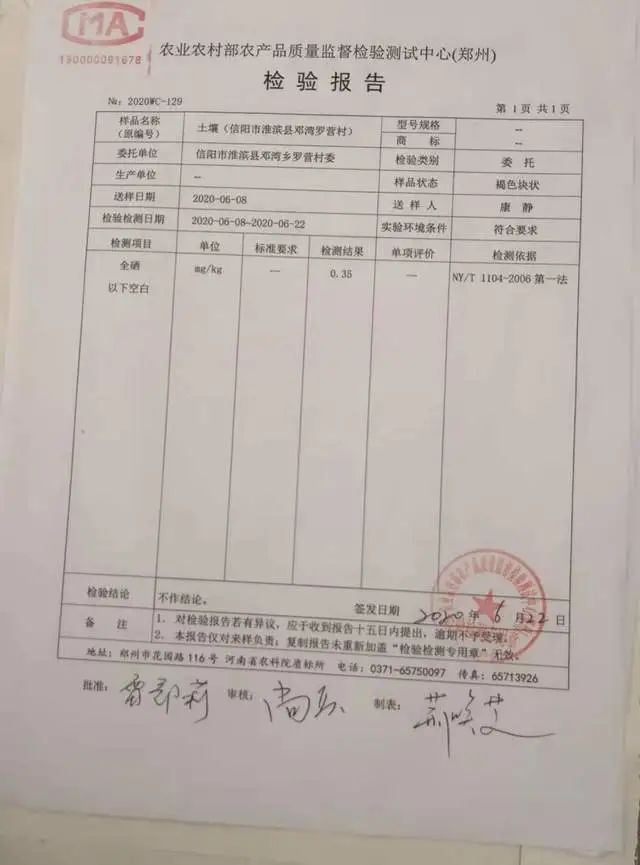 MA
190000091678
农业农村部农产品质量监督检验测试中心(郑州)
检验报告
№: 2020WC-129
第 1页 共1页
样品名称（原编号） 土壤（信阳市淮滨县邓湾罗营村） 型号规格 --
商 标 --
委托单位 信阳市淮滨县邓湾乡罗营村委 检验类别 委 托
生产单位 -- 样品状态 褐色块状
送样日期 2020-06-08 送 样 人 康 静
检验检测日期 2020-06-08~2020-06-22 实验环境条件 符合要求
检测项目 单位 标准要求 检测结果 单项评价 检测依据
全硒 mg/kg — 0.35 — NY/T 1104-2006 第一法
以下空白
检验结论 不作结论。
签发日期 2020 年 6 月 22 日
备 注 1. 对检验报告若有异议，应于收到报告十五日内提出，逾期不予受理。
2. 本报告仅对来样负责；复制报告未重新加盖“检验检测专用章”无效。
地址: 郑州市花园路116号 河南省农科院质标所 电话: 0371-65750097 传真: 65713926
批准: 审核: 制表: